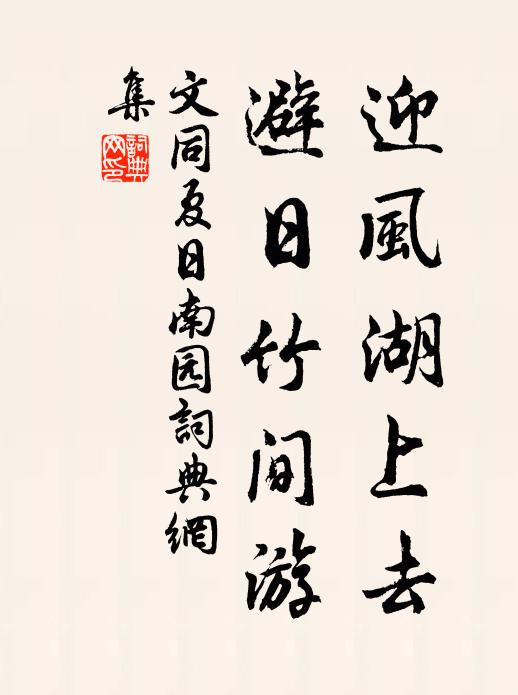 迎風湖上去
避日竹間游
文同夏日南园詞典網
集
詞典網印